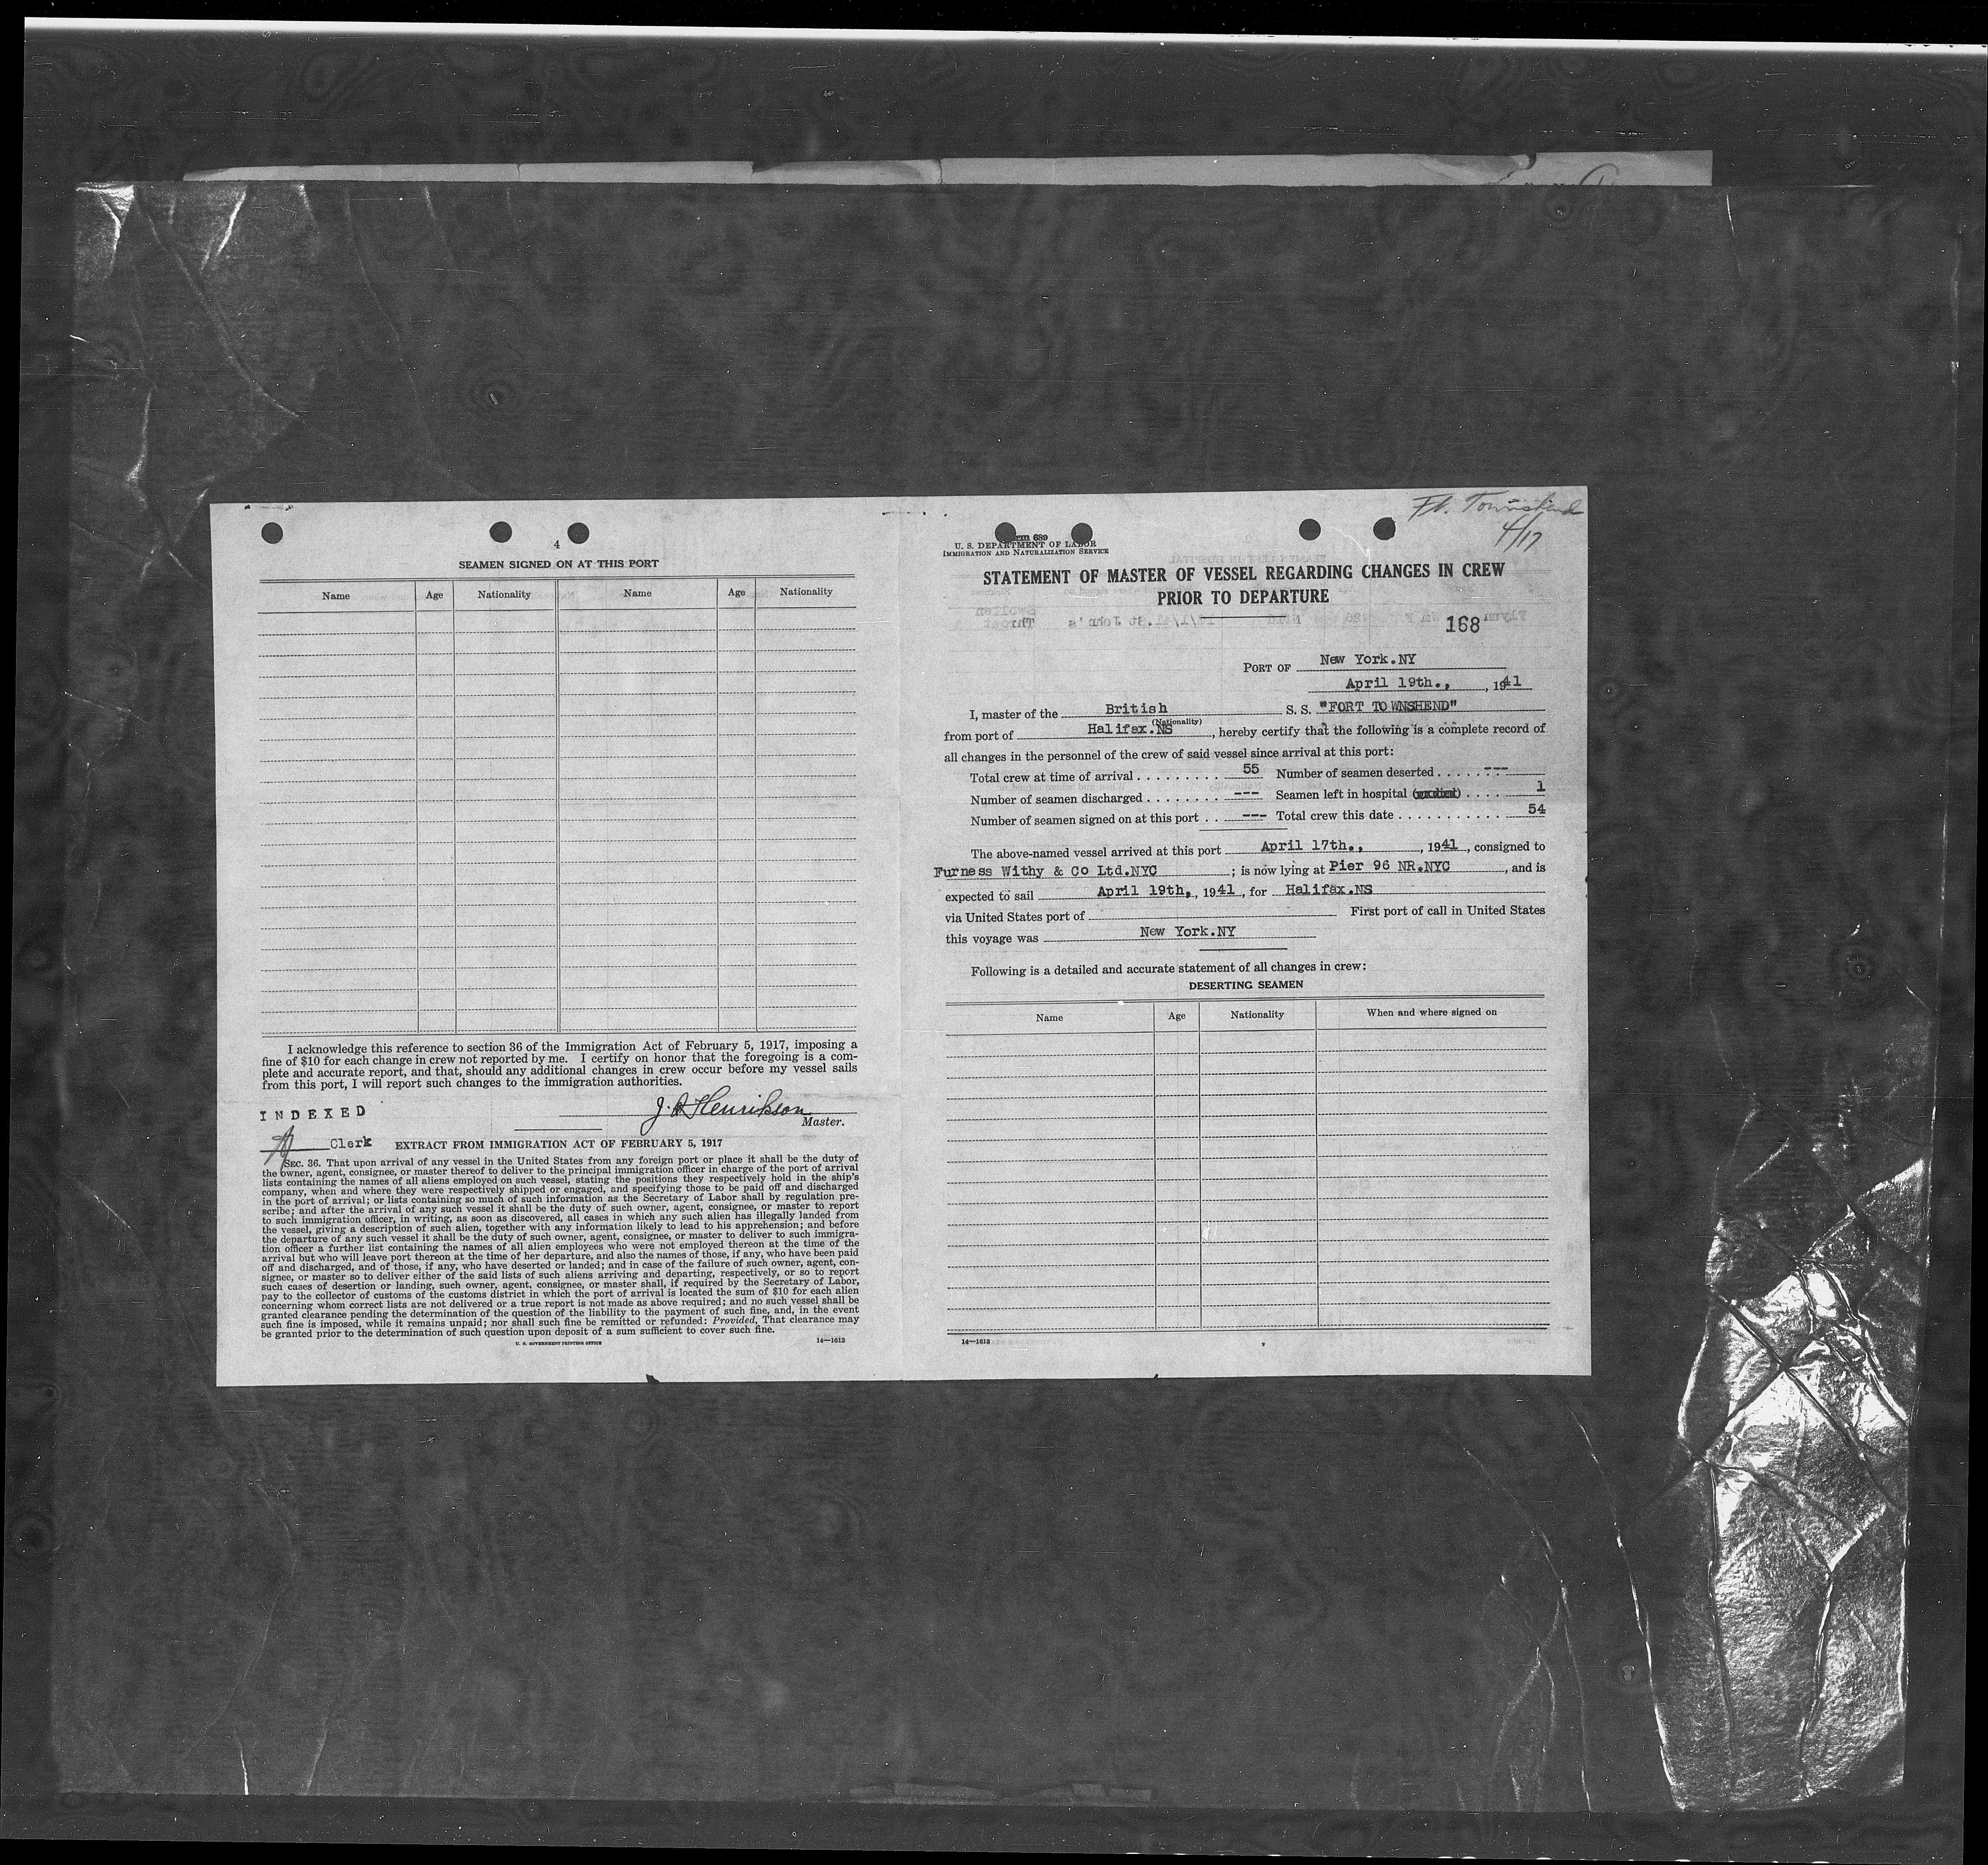 4
SEAMEN SIGNED ON AT THIS PORT
Name Age Nationality Name Age Nationality
I acknowledge this reference to section 36 of the Immigration Act of February 5, 1917, imposing a
fine of $10 for each change in crew not reported by me. I certify on honor that the foregoing is a com-
plete and accurate report, and that, should any additional changes in crew occur before my vessel sails
from this port, I will report such changes to the immigration authorities.
INDEXED
J. A Henrikson
Master.
Clerk
EXTRACT FROM IMMIGRATION ACT OF FEBRUARY 5, 1917
SEC. 36. That upon arrival of any vessel in the United States from any foreign port or place it shall be the duty of
the owner, agent, consignee, or master thereof to deliver to the principal immigration officer in charge of the port of arrival
lists containing the names of all aliens employed on such vessel, stating the positions they respectively hold in the ship's
company, when and where they were respectively shipped or engaged, and specifying those to be paid off and discharged
in the port of arrival; or lists containing so much of such information as the Secretary of Labor shall by regulation pre-
scribe; and after the arrival of any such vessel it shall be the duty of such owner, agent, consignee, or master to report
to such immigration officer, in writing, as soon as discovered, all cases in which any such alien has illegally landed from
the vessel, giving a description of such alien, together with any information likely to lead to his apprehension; and before
the departure of any such vessel it shall be the duty of such owner, agent, consignee, or master to deliver to such immigra-
tion officer a further list containing the names of all alien employees who were not employed thereon at the time of the
arrival but who will leave port thereon at the time of her departure, and also the names of those, if any, who have been paid
off and discharged, and of those, if any, who have deserted or landed; and in case of the failure of such owner, agent, con-
signee, or master so to deliver either of the said lists of such aliens arriving and departing, respectively, or so to report
such cases of desertion or landing, such owner, agent, consignee, or master shall, if required by the Secretary of Labor,
pay to the collector of customs of the customs district in which the port of arrival is located the sum of $10 for each alien
concerning whom correct lists are not delivered or a true report is not made as above required; and no such vessel shall be
granted clearance pending the determination of the question of the liability to the payment of such fine, and, in the event
such fine is imposed, while it remains unpaid; nor shall such fine be remitted or refunded: Provided, That clearance may
be granted prior to the determination of such question upon deposit of a sum sufficient to cover such fine.
U. S. GOVERNMENT PRINTING OFFICE 14—1613
Ft. Townshend
4/17
Form 689
U. S. DEPARTMENT OF LABOR
IMMIGRATION AND NATURALIZATION SERVICE
STATEMENT OF MASTER OF VESSEL REGARDING CHANGES IN CREW
PRIOR TO DEPARTURE
168
PORT OF New York.NY
April 19th., , 1941
I, master of the British S. S. "FORT TOWNSHEND"
(Nationality)
from port of Halifax.NS, hereby certify that the following is a complete record of
all changes in the personnel of the crew of said vessel since arrival at this port:
Total crew at time of arrival . . . . . . . . . 55 Number of seamen deserted . . . . . . ---
Number of seamen discharged . . . . . . . . --- Seamen left in hospital (or died) . . . . 1
Number of seamen signed on at this port . . --- Total crew this date . . . . . . . . . . . 54
The above-named vessel arrived at this port April 17th., , 1941, consigned to
Furness Withy & Co Ltd.NYC ; is now lying at Pier 96 NR.NYC , and is
expected to sail April 19th., 1941, for Halifax.NS
via United States port of First port of call in United States
this voyage was New York.NY
Following is a detailed and accurate statement of all changes in crew:
DESERTING SEAMEN
Name Age Nationality When and where signed on
14—1613